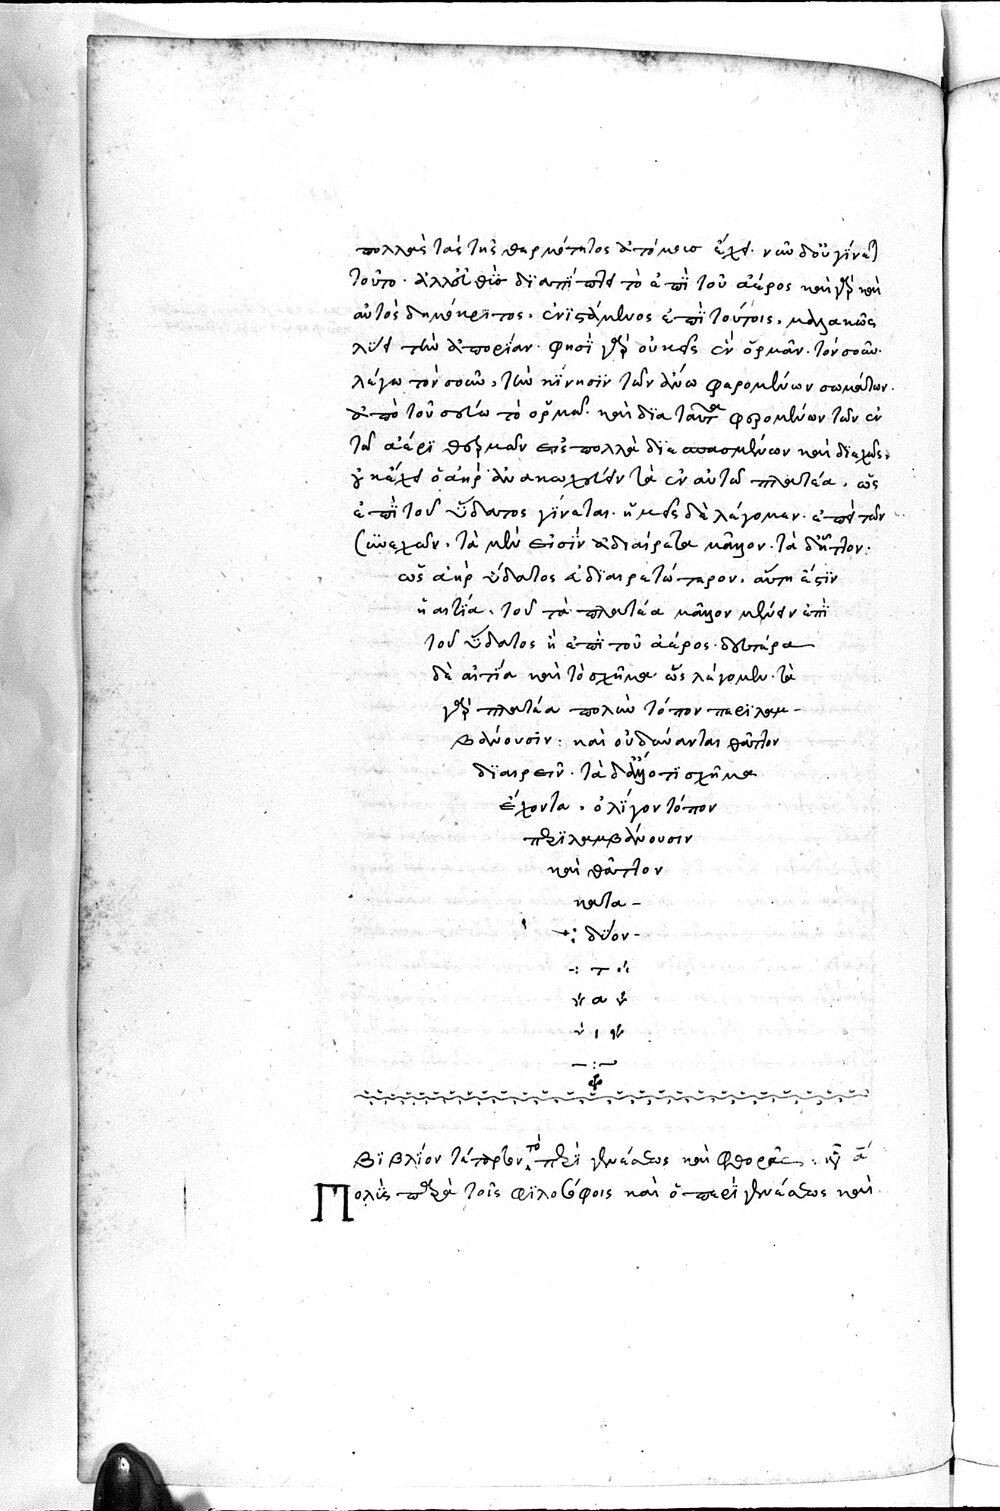 πολλὰς τὰς τῆς θερμότητος ἀτόμους ἔχει. νῦν δ' οὐ γίνεται
τοῦτο. ἀλλ' διαπίπτει τὸ ἐπὶ τοῦ ἀέρος καὶ γὰρ καὶ
αὐτὸς δημόκριτος. ἐνιστάμενος ἐπὶ τούτοις, μαλακῶς
λύει τὴν ἀπορίαν. φησὶ γὰρ οὐκ εἰς ἓν ὁρμᾶν. τὸν σοῦν.
λέγω τὸν σοῦν, τὴν κίνησιν τῶν ἄνω φερομένων σωμάτων.
ἀπὸ τοῦ σούω τὸ ὁρμῶ. καὶ διὰ ταῦτα φερομένων τῶν ἐν
τῶ ἀέρι θερμῶν εἰς πολλὰ διασπασμένων καὶ διεχῶς,
οὐκ ἔχει ὁ ἀὴρ ἀνακωχεύειν τὰ ἐν αὐτῶ πλατέα. ὡς
ἐπὶ τοῦ ὕδατος γίνεται. ἡμεῖς δὲ λέγομεν. ἐπεὶ τῶν
συνεχῶν. τὰ μὲν εἰσὶν ἀδιαίρετα μᾶλλον. τὰ δ' ἧττον:
ὡς ἀὴρ ὕδατος ἀδιαιρετώτερον. αὕτη ἐστὶν
ἡ αἰτία. τοῦ τὰ πλατέα μᾶλλον μένειν ἐπὶ
τοῦ ὕδατος ἢ ἐπὶ τοῦ ἀέρος. δευτέρα
δὲ αἰτία καὶ τὸ σχῆμα ὡς λέγομεν. τὰ
γὰρ πλατέα πολὺν τόπον περιλαμ-
βάνουσιν: καὶ οὐ δύνανται θᾶττον
διαιρεῖν. τὰ δ' ἀλλότι σχῆμα
ἔχοντα, ὀλίγον τόπον
περιλαμβάνουσιν
καὶ θᾶττον
κατα-
δύον-
ται
βιβλίον τέταρτον, τὸ περὶ γενέσεως καὶ φθορᾶς.
Πολὺς παρὰ τοῖς φιλοσόφοις καὶ ὁ περὶ γενέσεως καὶ